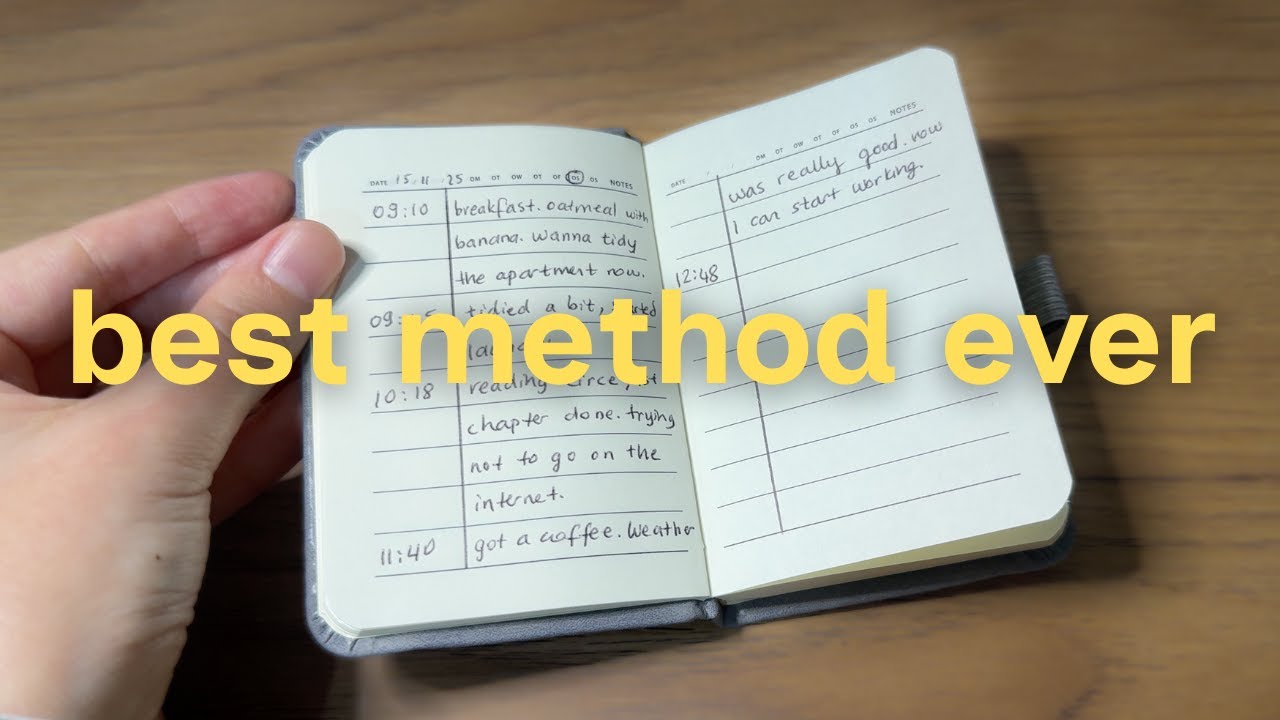 DATE 15 11 25 DM DT DW DT DF DS DS NOTES
09:10 breakfast. oatmeal with
banana. wanna tidy
the apartment now.
09: 5 tidied a bit,
10:18 reading circe, 1st
chapter done. trying
not to go on the
internet.
11:40 got a coffee. Weather
DATE DM DT DW DT DF DS DS NOTES
was really good. now
I can start working.
12:48
best method ever